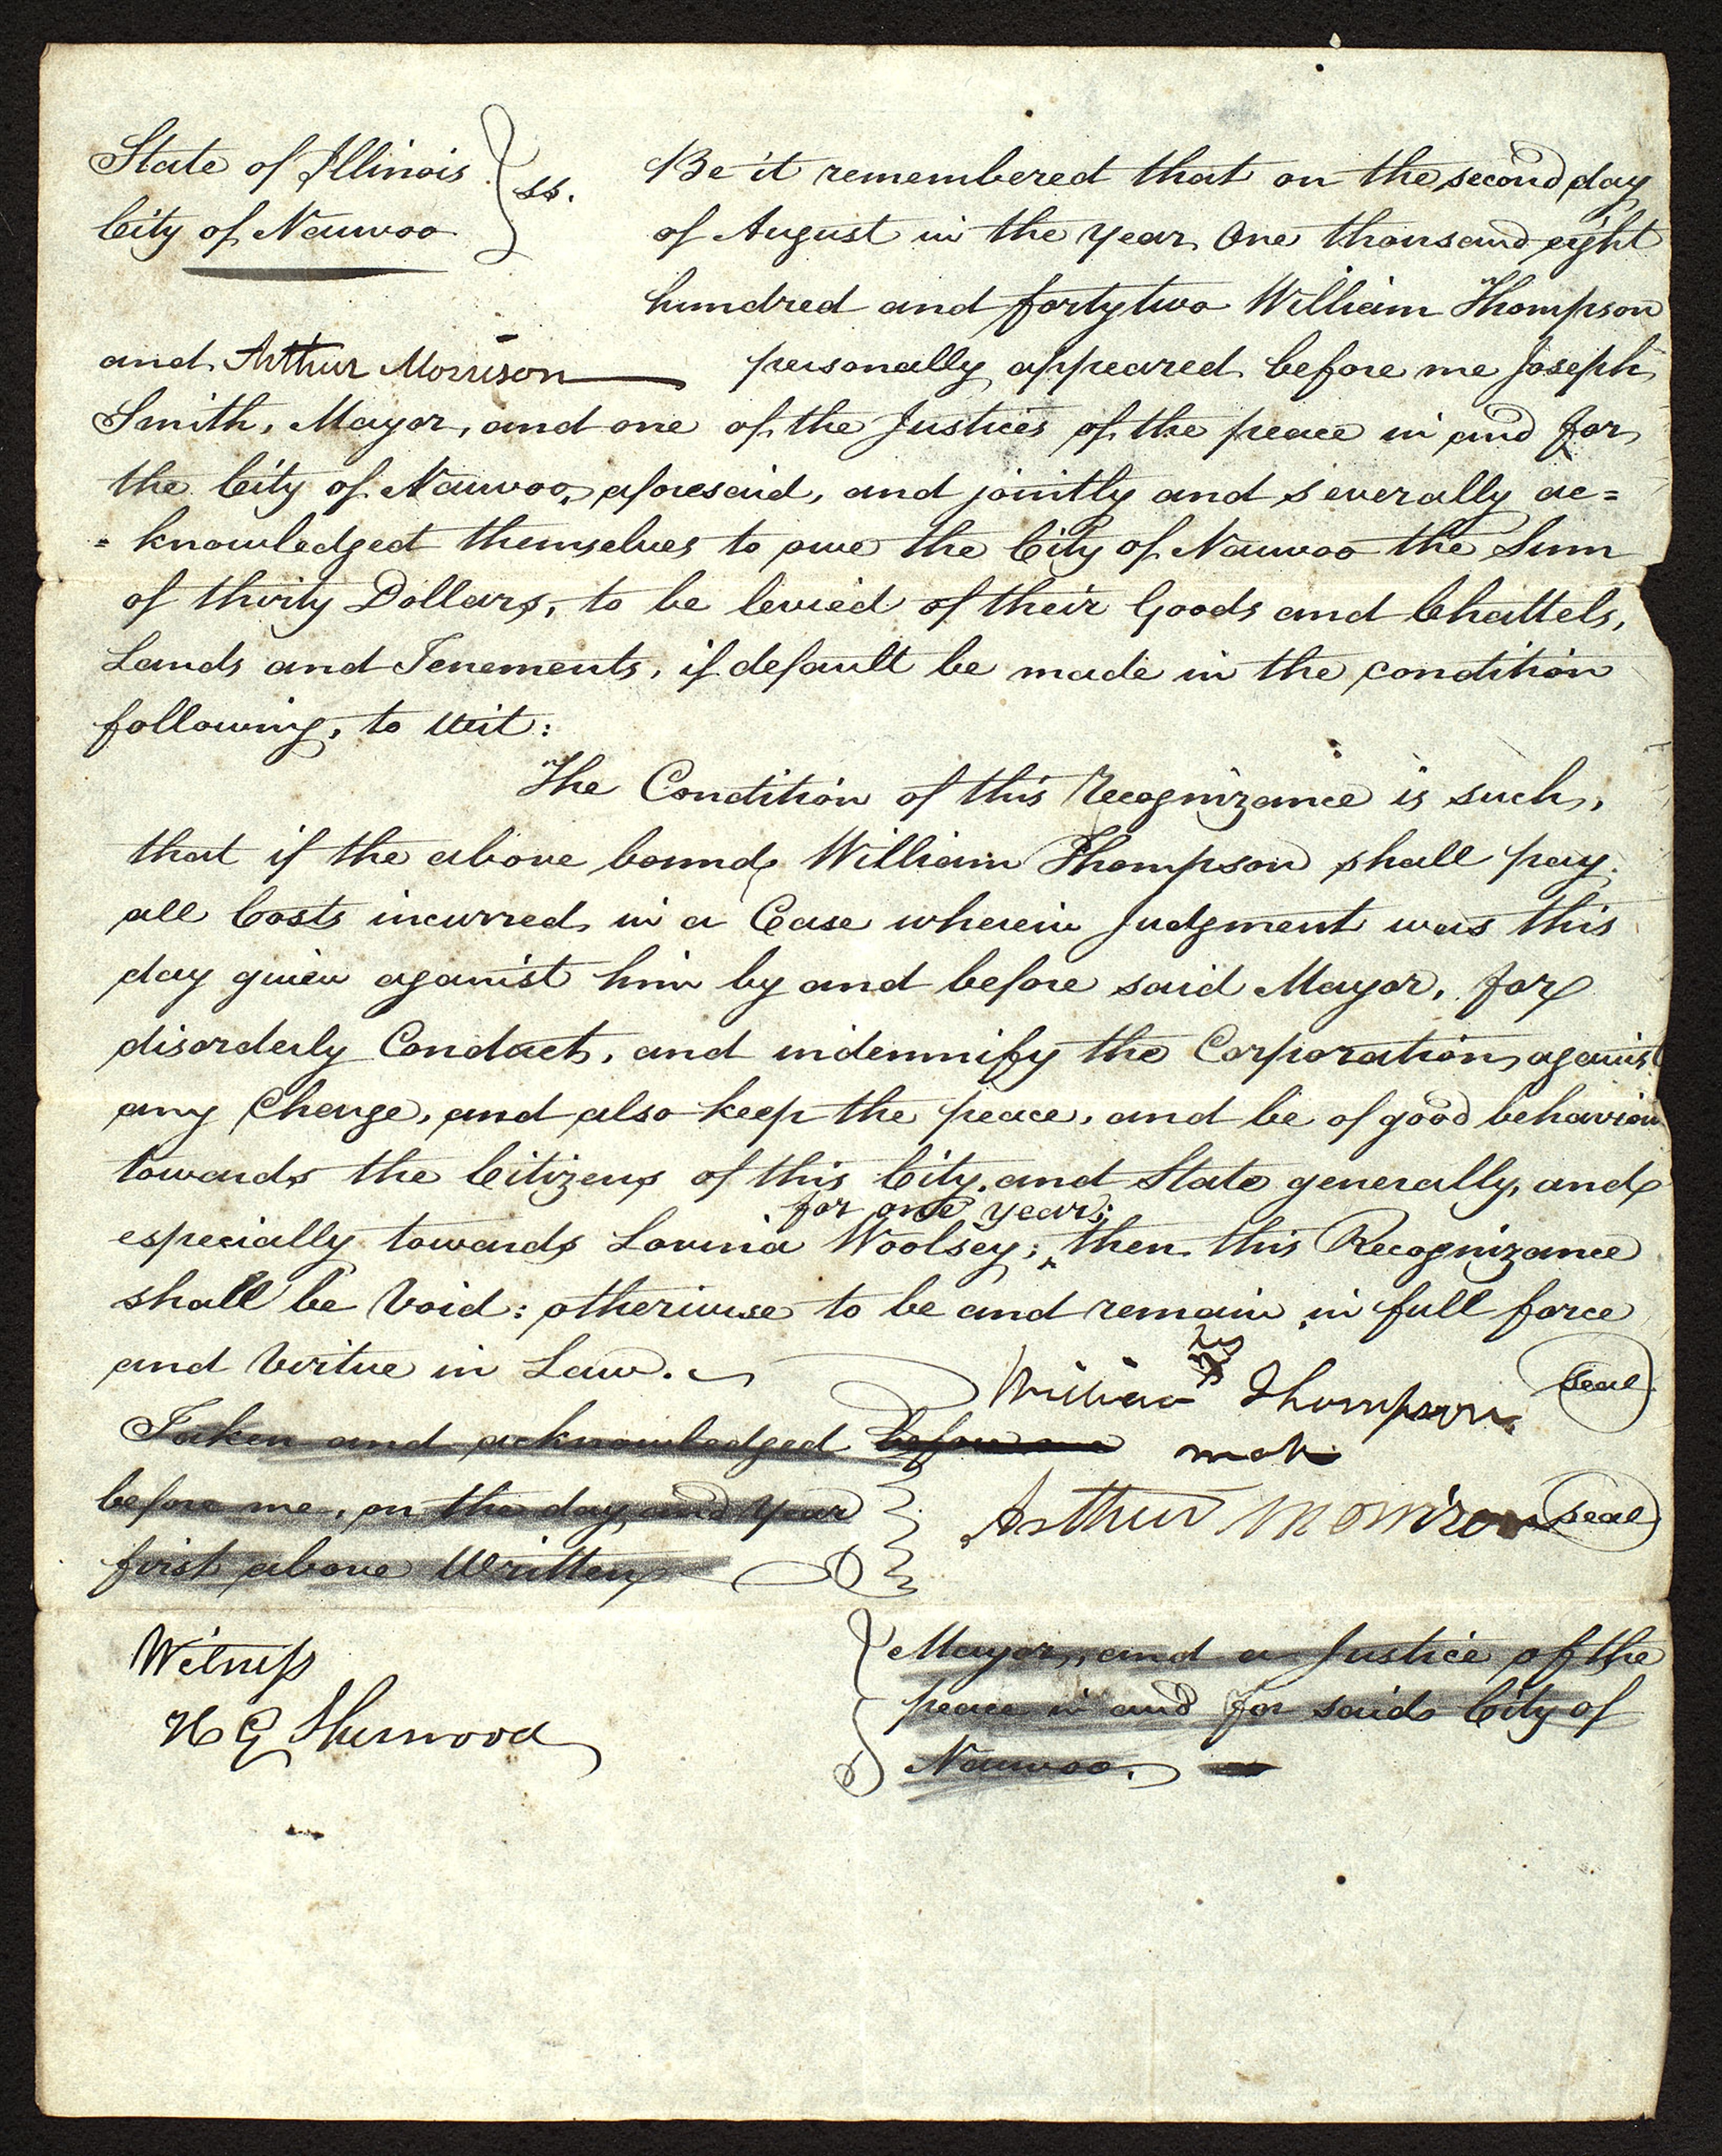 State of Illinois } ss.
City of Nauvoo
Be it remembered that on the second day
of August in the year One thousand eight
hundred and fortytwo William Thompson
and Arthur Morrison personally appeared before me Joseph
Smith, Mayor, and one of the Justices of the peace in and for
the City of Nauvoo, aforesaid, and jointly and severally ac=
=knowledged themselves to owe the City of Nauvoo the Sum
of thirty Dollars, to be levied of their Goods and Chattels,
Lands and Tenements, if default be made in the condition
following, to wit:
The Condition of this Recognizance is such,
that if the above bound William Thompson shall pay
all Costs incurred in a Case wherein Judgment was this
day given against him by and before said Mayor, for
disorderly Conduct, and indemnify the Corporation against
any Charge, and also keep the peace, and be of good behavior
towards the Citizens of this City, and State generally, and
for one year;
especially towards Lovina Woolsey; ‸ then this Recognizance
shall be Void: otherwise to be and remain in full force
and Virtue in Law.
his
William x Thompson seal
mark
Taken and acknowledged before me
before me, on the day and Year
first above Written
Arthur Morrison seal
Witness
H G Sherwood
Mayor, and a Justice of the
peace in and for said City of
Nauvoo.